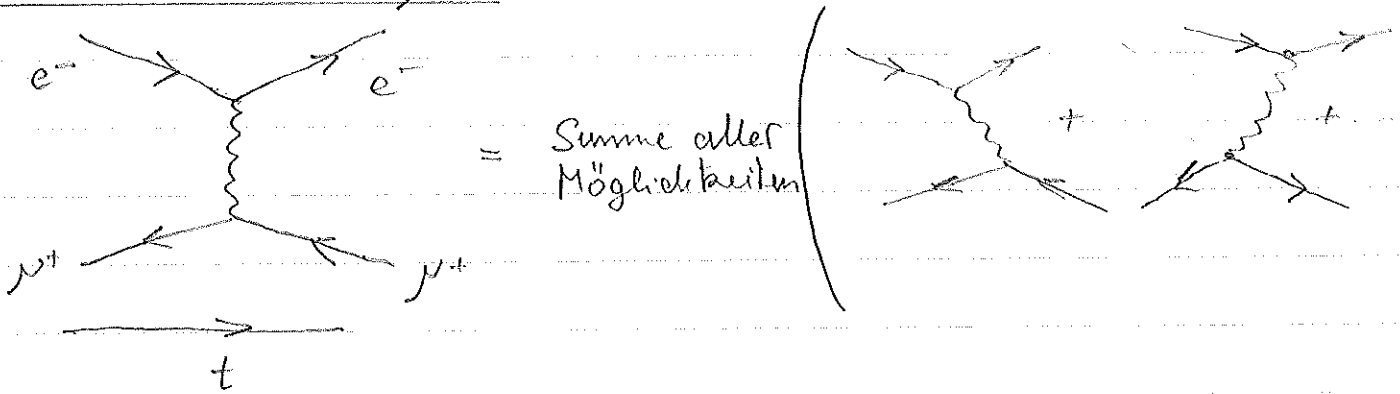 e⁻ e⁻
= Summe aller
Möglichkeiten
+ +
μ⁺ μ⁺
t